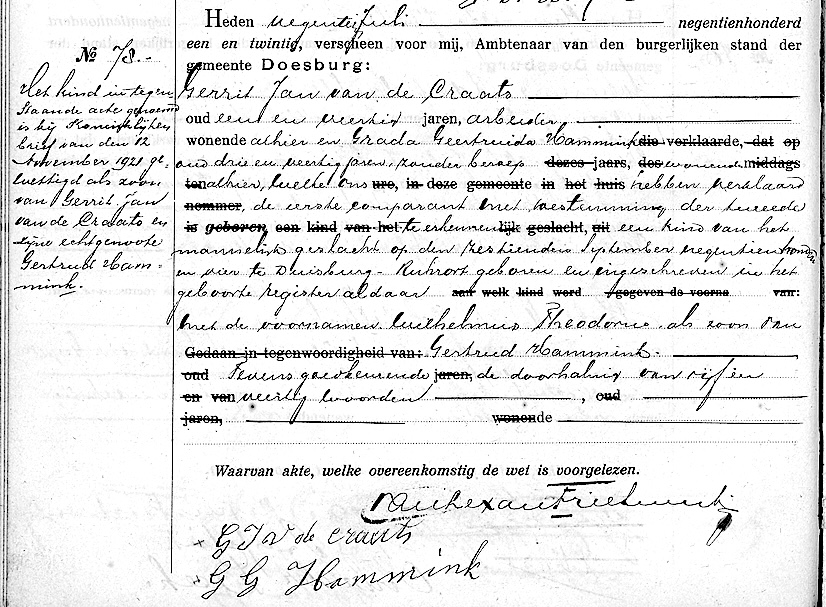 Heden negentien Juli negentienhonderd
een en twintig, verscheen voor mij, Ambtenaar van den burgerlijken stand der
gemeente Doesburg:
Gerrit Jan van de Craats
oud een en veertig jaren, arbeider,
wonende alhier en Grada Geertruida Hammink die verklaarde, dat op
oud drie en veertig jaren, zonder beroep dezes jaars, des wonende middags
ten alhier, welke ons ure, in deze gemeente in het huis hebben verklaard
nommer, de eerste comparant met toestemming der tweede
is geboren, een kind van het te erkennen lijk geslacht, uit een kind van het
mannelijk geslacht op den zestienden September negentienhonderd
en vier te Duisburg-Ruhrort geboren en ingeschreven in het
geboorte register aldaar aan welk kind werd gegeven de voorna van:
met de voornamen Wilhelmus Theodorus als zoon van
Gedaan in tegenwoordigheid van: Gertrud Hammink.
oud Tevens goedkeurende jaren, de doorhaling van vijf en
en van veertig woorden , oud
jaren, wonende
Waarvan akte, welke overeenkomstig de wet is voorgelezen.
G J V de Craats
G G Hammink
No 78.
Het kind in tegen
staande acte genoemd
is bij Koninklijken
brief van den 12
November 1921 ge-
wettigd als zoon
van Gerrit Jan
van de Craats en
zijne echtgenoote
Gertrud Ham-
mink.